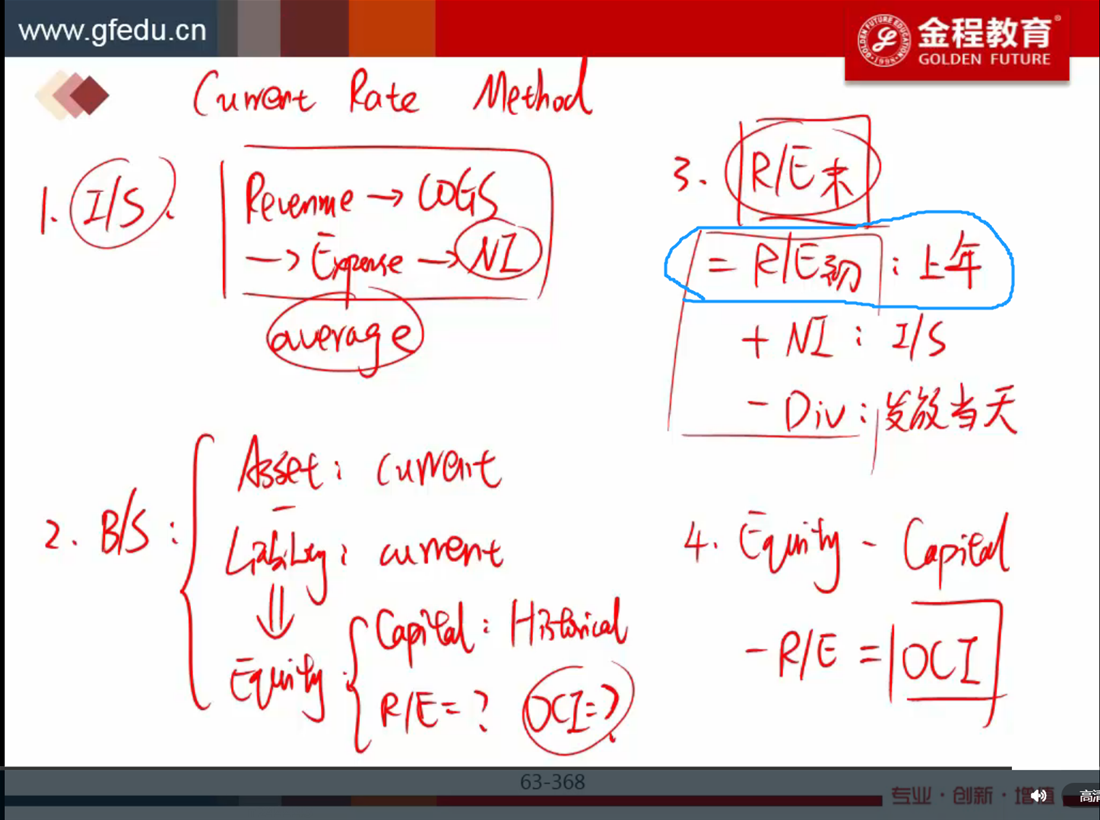 www.gfedu.cn
金程教育
GOLDEN FUTURE
Current Rate Method
1. I/S:
Revenue → COGS
→ Expense → NI
average
2. B/S:
Asset: current
-
Liability: current
⇓
Equity:
Capital: Historical
R/E=? OCI=?
3. R/E末
= R/E初: 上年
+ NI: I/S
- Div: 发放当天
4. Equity - Capital
- R/E = OCI
63-368
专业·创新·增值
高清